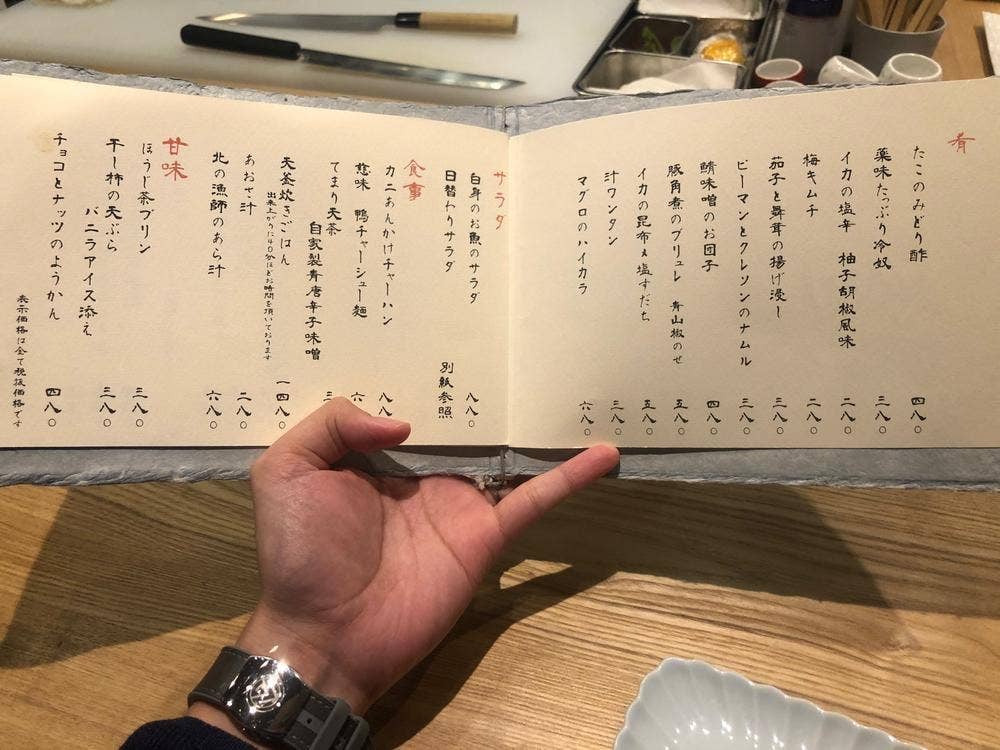 肴
たこのみどり酢 四八〇
薬味たっぷり冷奴 三八〇
イカの塩辛 柚子胡椒風味 二八〇
梅キムチ 二八〇
茄子と舞茸の揚げ浸し 三八〇
ピーマンとクレソンのナムル 三八〇
鯖味噌のお団子 四八〇
豚角煮のブリュレ 青山椒のせ 五八〇
イカの昆布〆塩すだち 五八〇
汁ワンタン 三八〇
マグロのハイカラ 六八〇
サラダ
白身のお魚のサラダ 八八〇
日替わりサラダ 別紙参照
食事
カニあんかけチャーハン 八八
鴨チャーシュー麺 六
てまり天茶
自家製青唐辛子味噌
天釜炊きごはん 一四八〇
出来上がりに40分ほどお時間を頂いております
あおさ汁 二八〇
北の漁師のあら汁 六八〇
甘味
ほうじ茶プリン 三八〇
干し柿の天ぷら
バニラアイス添え 三八〇
チョコとナッツのようかん 四八〇
表示価格は全て税抜価格です